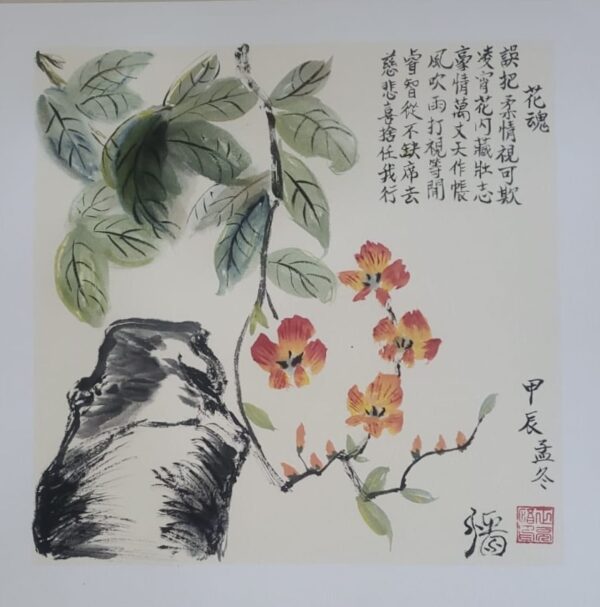 花魂
誤把柔情視可欺
凌宵花內藏壯志
豪情萬丈天作帳
風吹雨打視等閒
睿智從不缺席去
慈悲喜捨任我行
甲辰孟冬